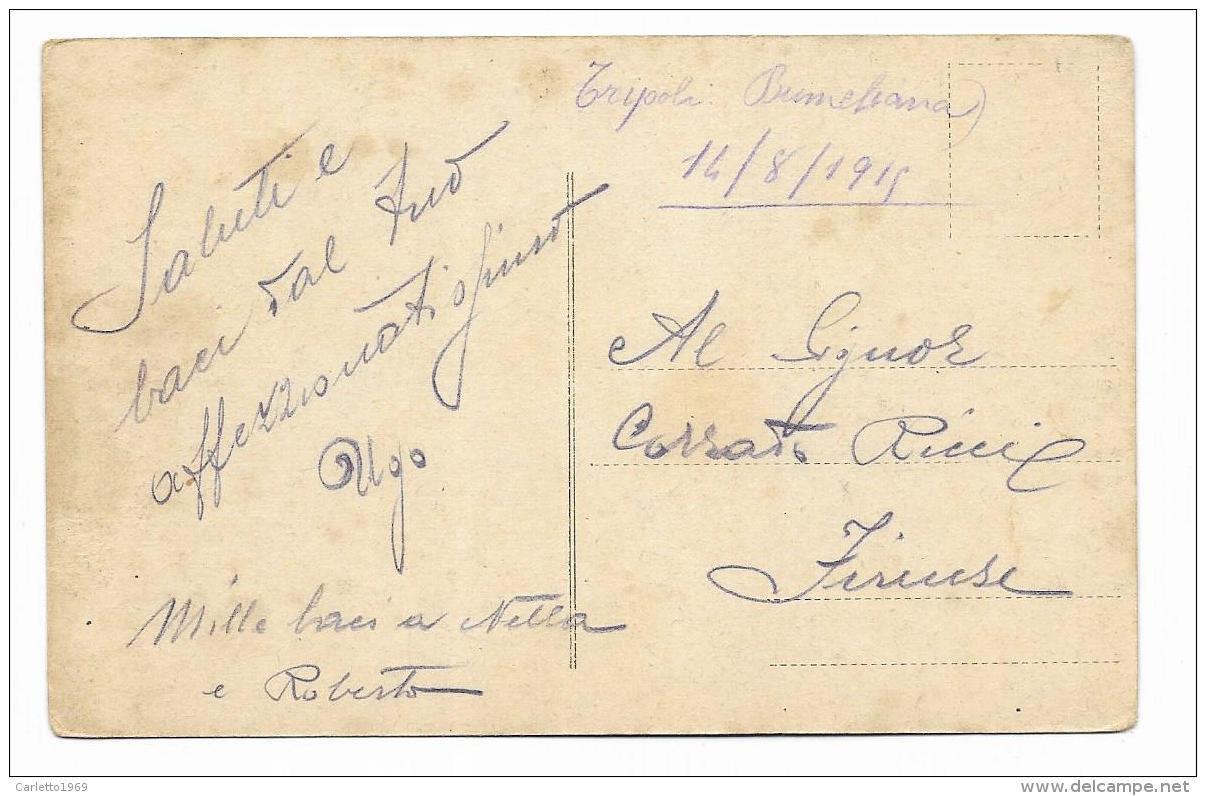 Tripoli Bumeliana
14/8/1915
Saluti e
baci dal tuo
affezzionatissimo
Ugo
Mille baci a Nella
e Roberto
Al Signor
Corrado Ricci
Firense
Carletto1969
delcampe.net